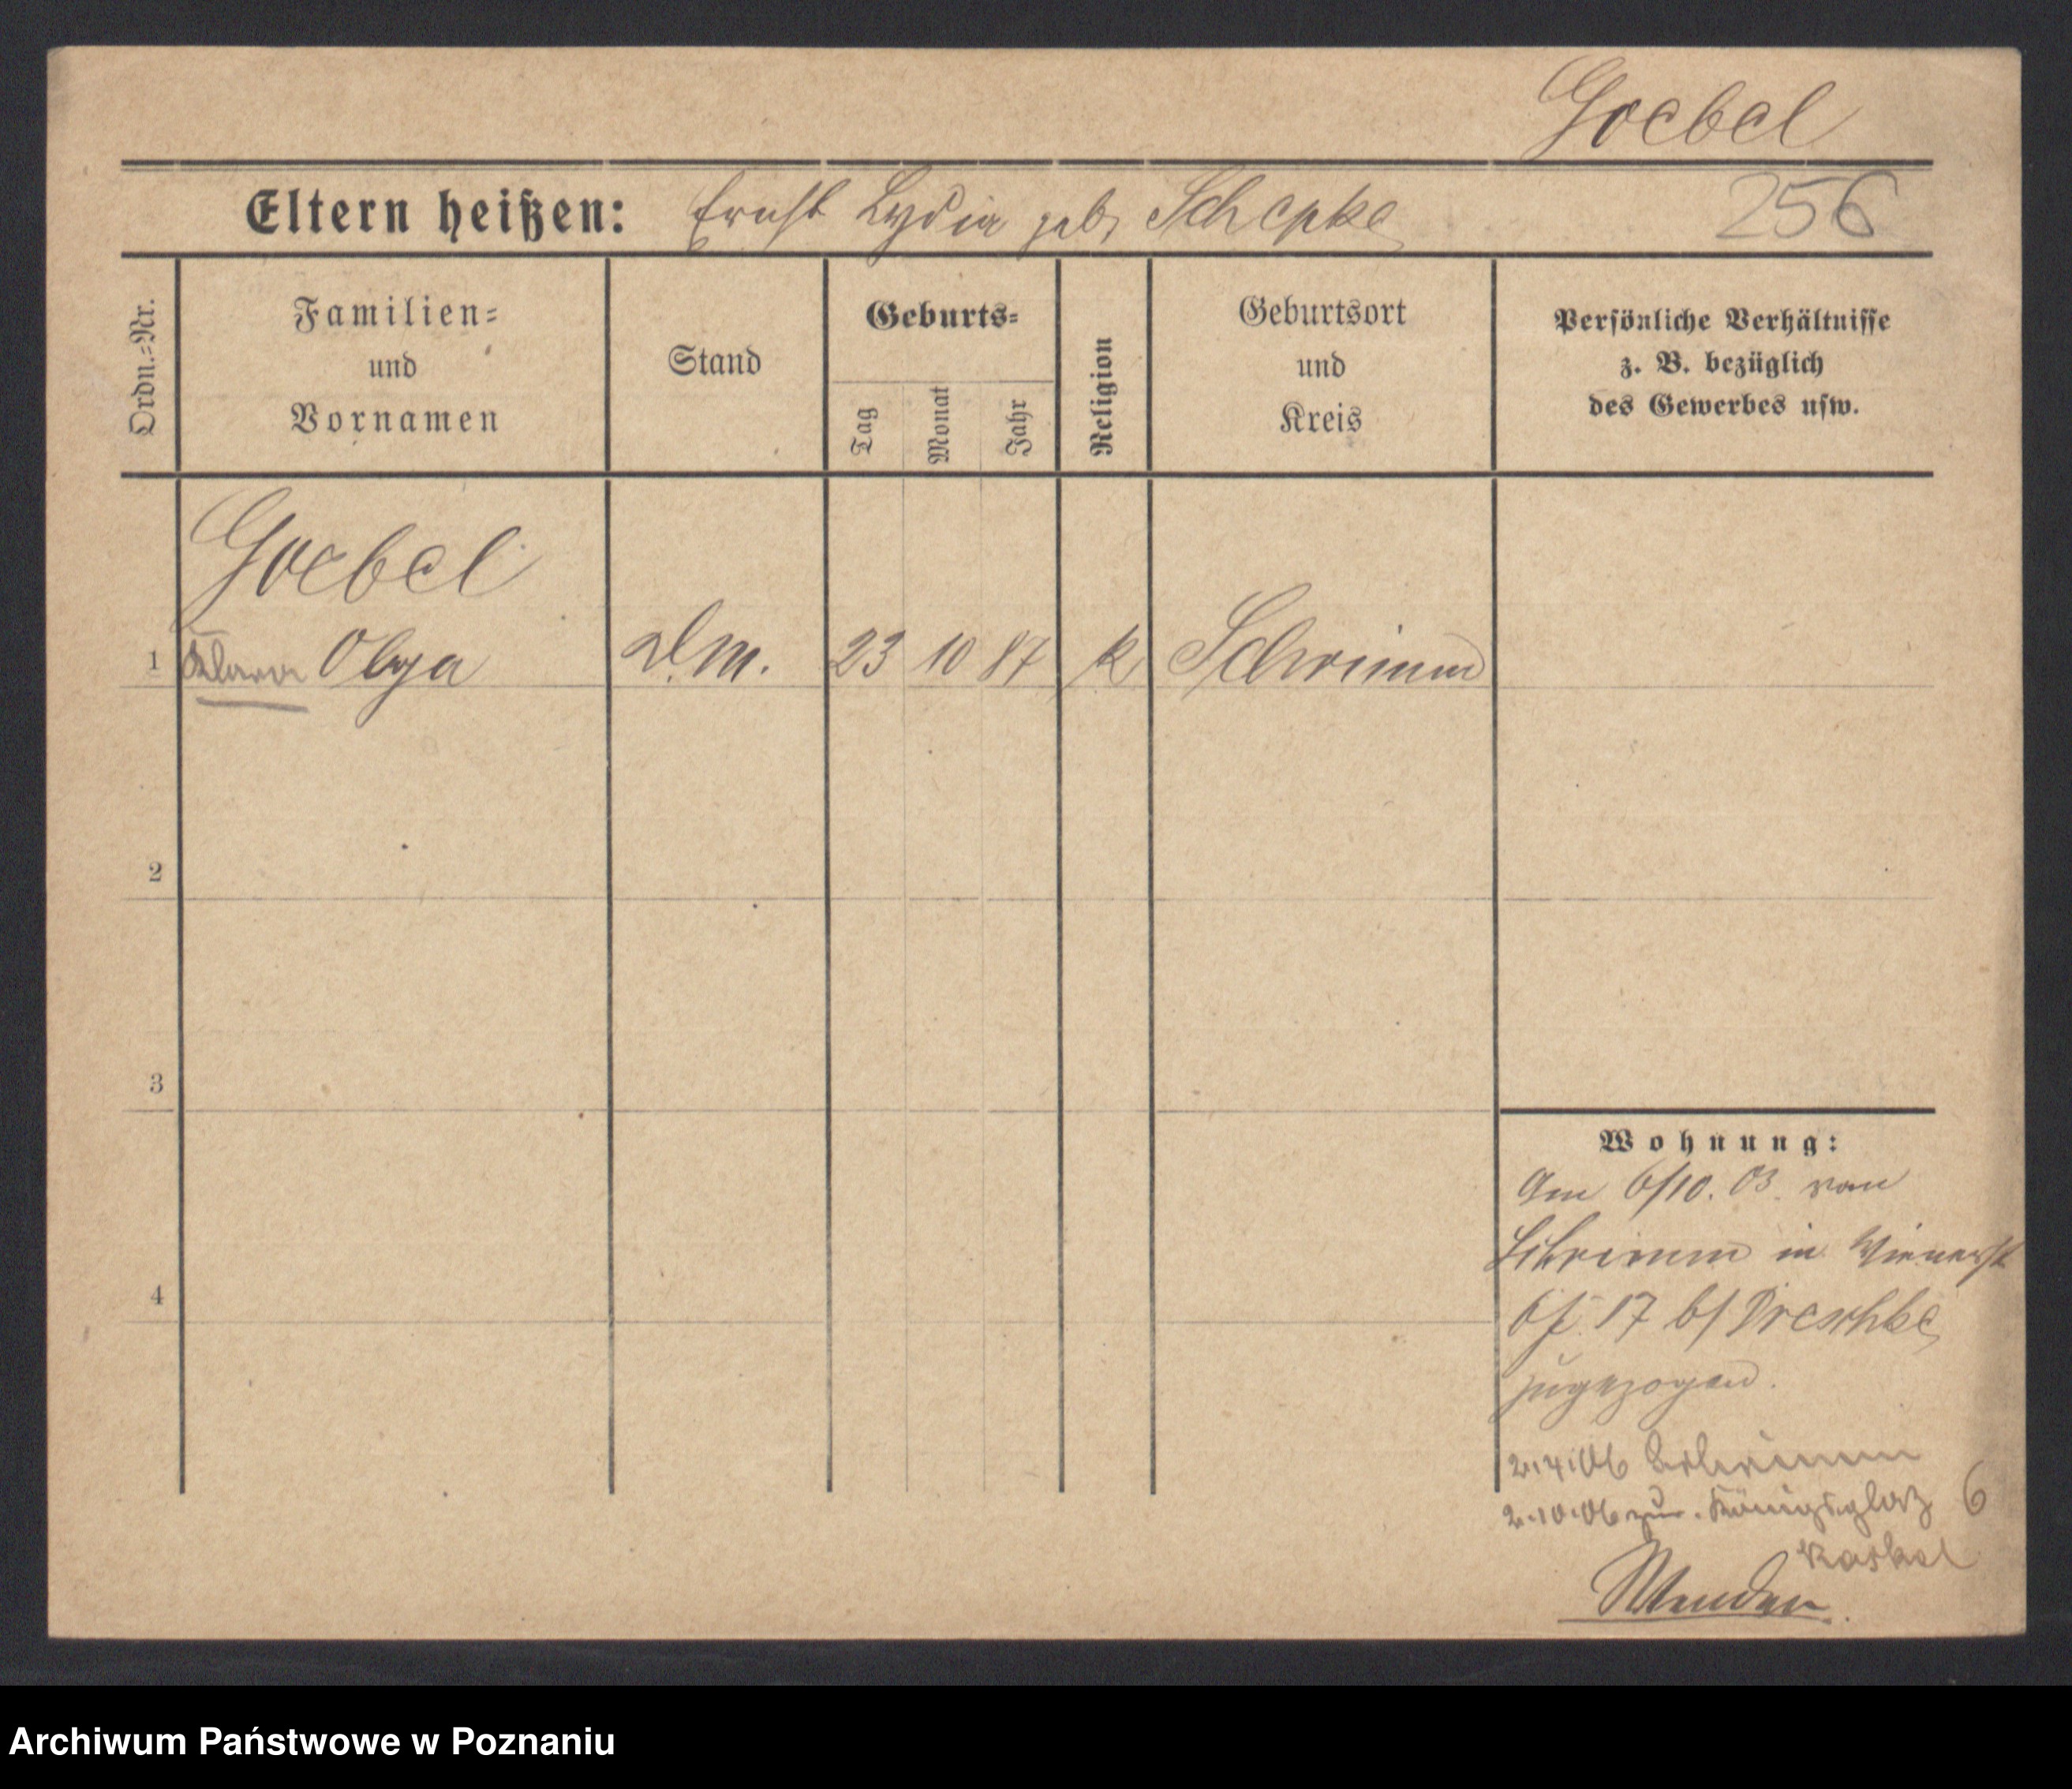 Goebel
Eltern heißen: Ernst Lydia geb. Schepke 256
Ordn.=Nr.
Familien=
und
Vornamen
Stand
Geburts=
Tag
Monat
Jahr
Religion
Geburtsort
und
Kreis
Persönliche Verhältnisse
z. B. bezüglich
des Gewerbes usw.
Goebel
1 Klara Olga Dm. 23 10 87 k Schrimm
2
3
4
Wohnung:
Am 6/10. 03. von
Schrimm in Wienerstr
17 b/ Dreschke
zugezogen.
2.4.06 Schrimm
2.10.06 zur. Königsplatz 6
Kaskel
Wenden
Archiwum Państwowe w Poznaniu